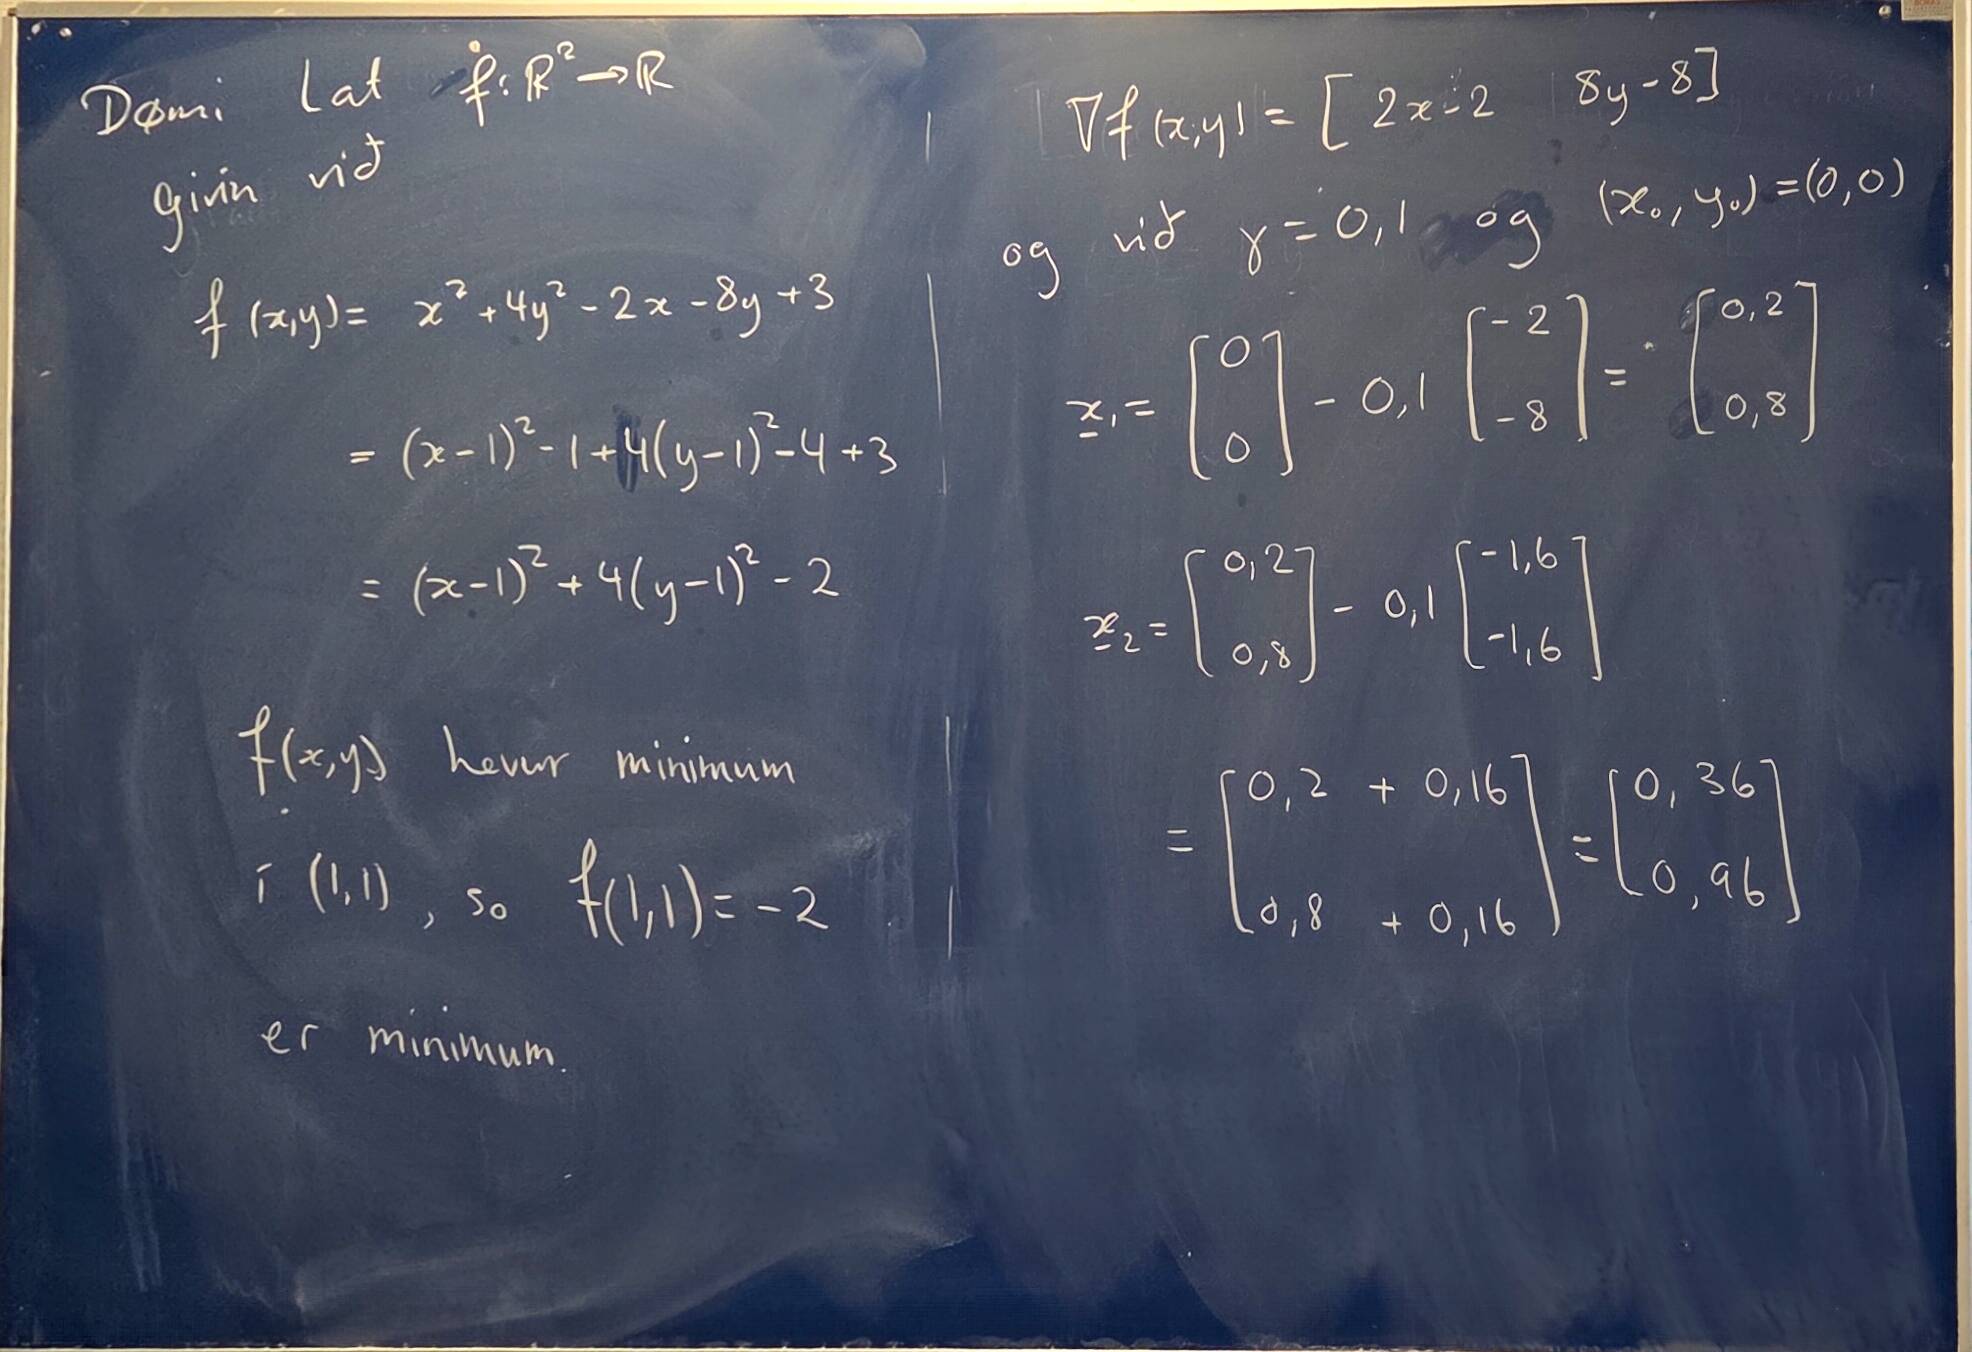 Dømi Lat f: ℝ² → ℝ
givin við
f(x,y) = x² + 4y² - 2x - 8y + 3
= (x-1)² - 1 + 4(y-1)² - 4 + 3
= (x-1)² + 4(y-1)² - 2
f(x,y) hevur minimum
í (1,1), so f(1,1) = -2
er minimum.
∇f(x,y) = [2x-2 8y-8]
og við γ = 0,1 og (x₀, y₀) = (0,0)
x₁ = [0 0] - 0,1 [-2 -8] = [0,2 0,8]
x₂ = [0,2 0,8] - 0,1 [-1,6 -1,6]
= [0,2 + 0,16 0,8 + 0,16] = [0,36 0,96]